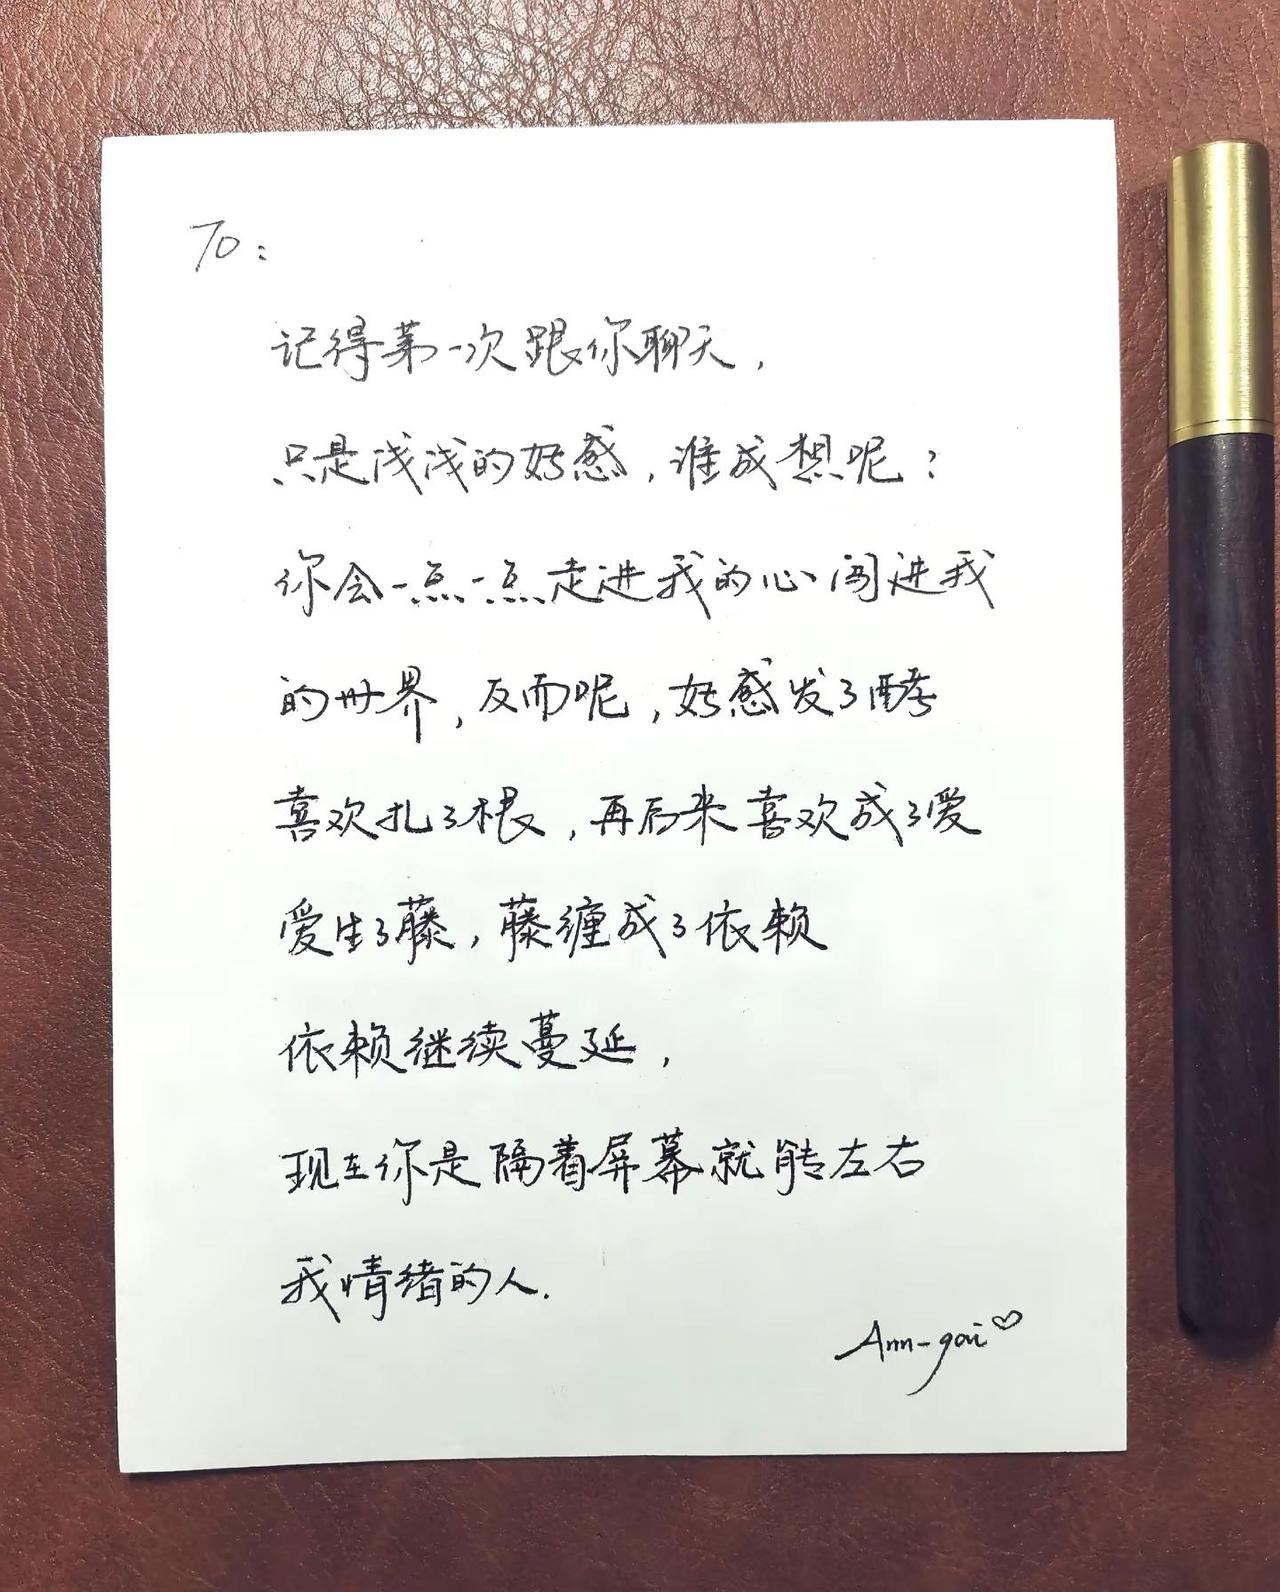 To:
记得第一次跟你聊天,
只是浅浅的好感,谁成想呢?
你会一点一点走进我的心闯进我
的世界,反而呢,好感发了酵
喜欢扎了根,再后来喜欢成了爱
爱生了藤,藤缠成了依赖
依赖继续蔓延,
现在你是隔着屏幕就能左右
我情绪的人.
Ann-gai♡